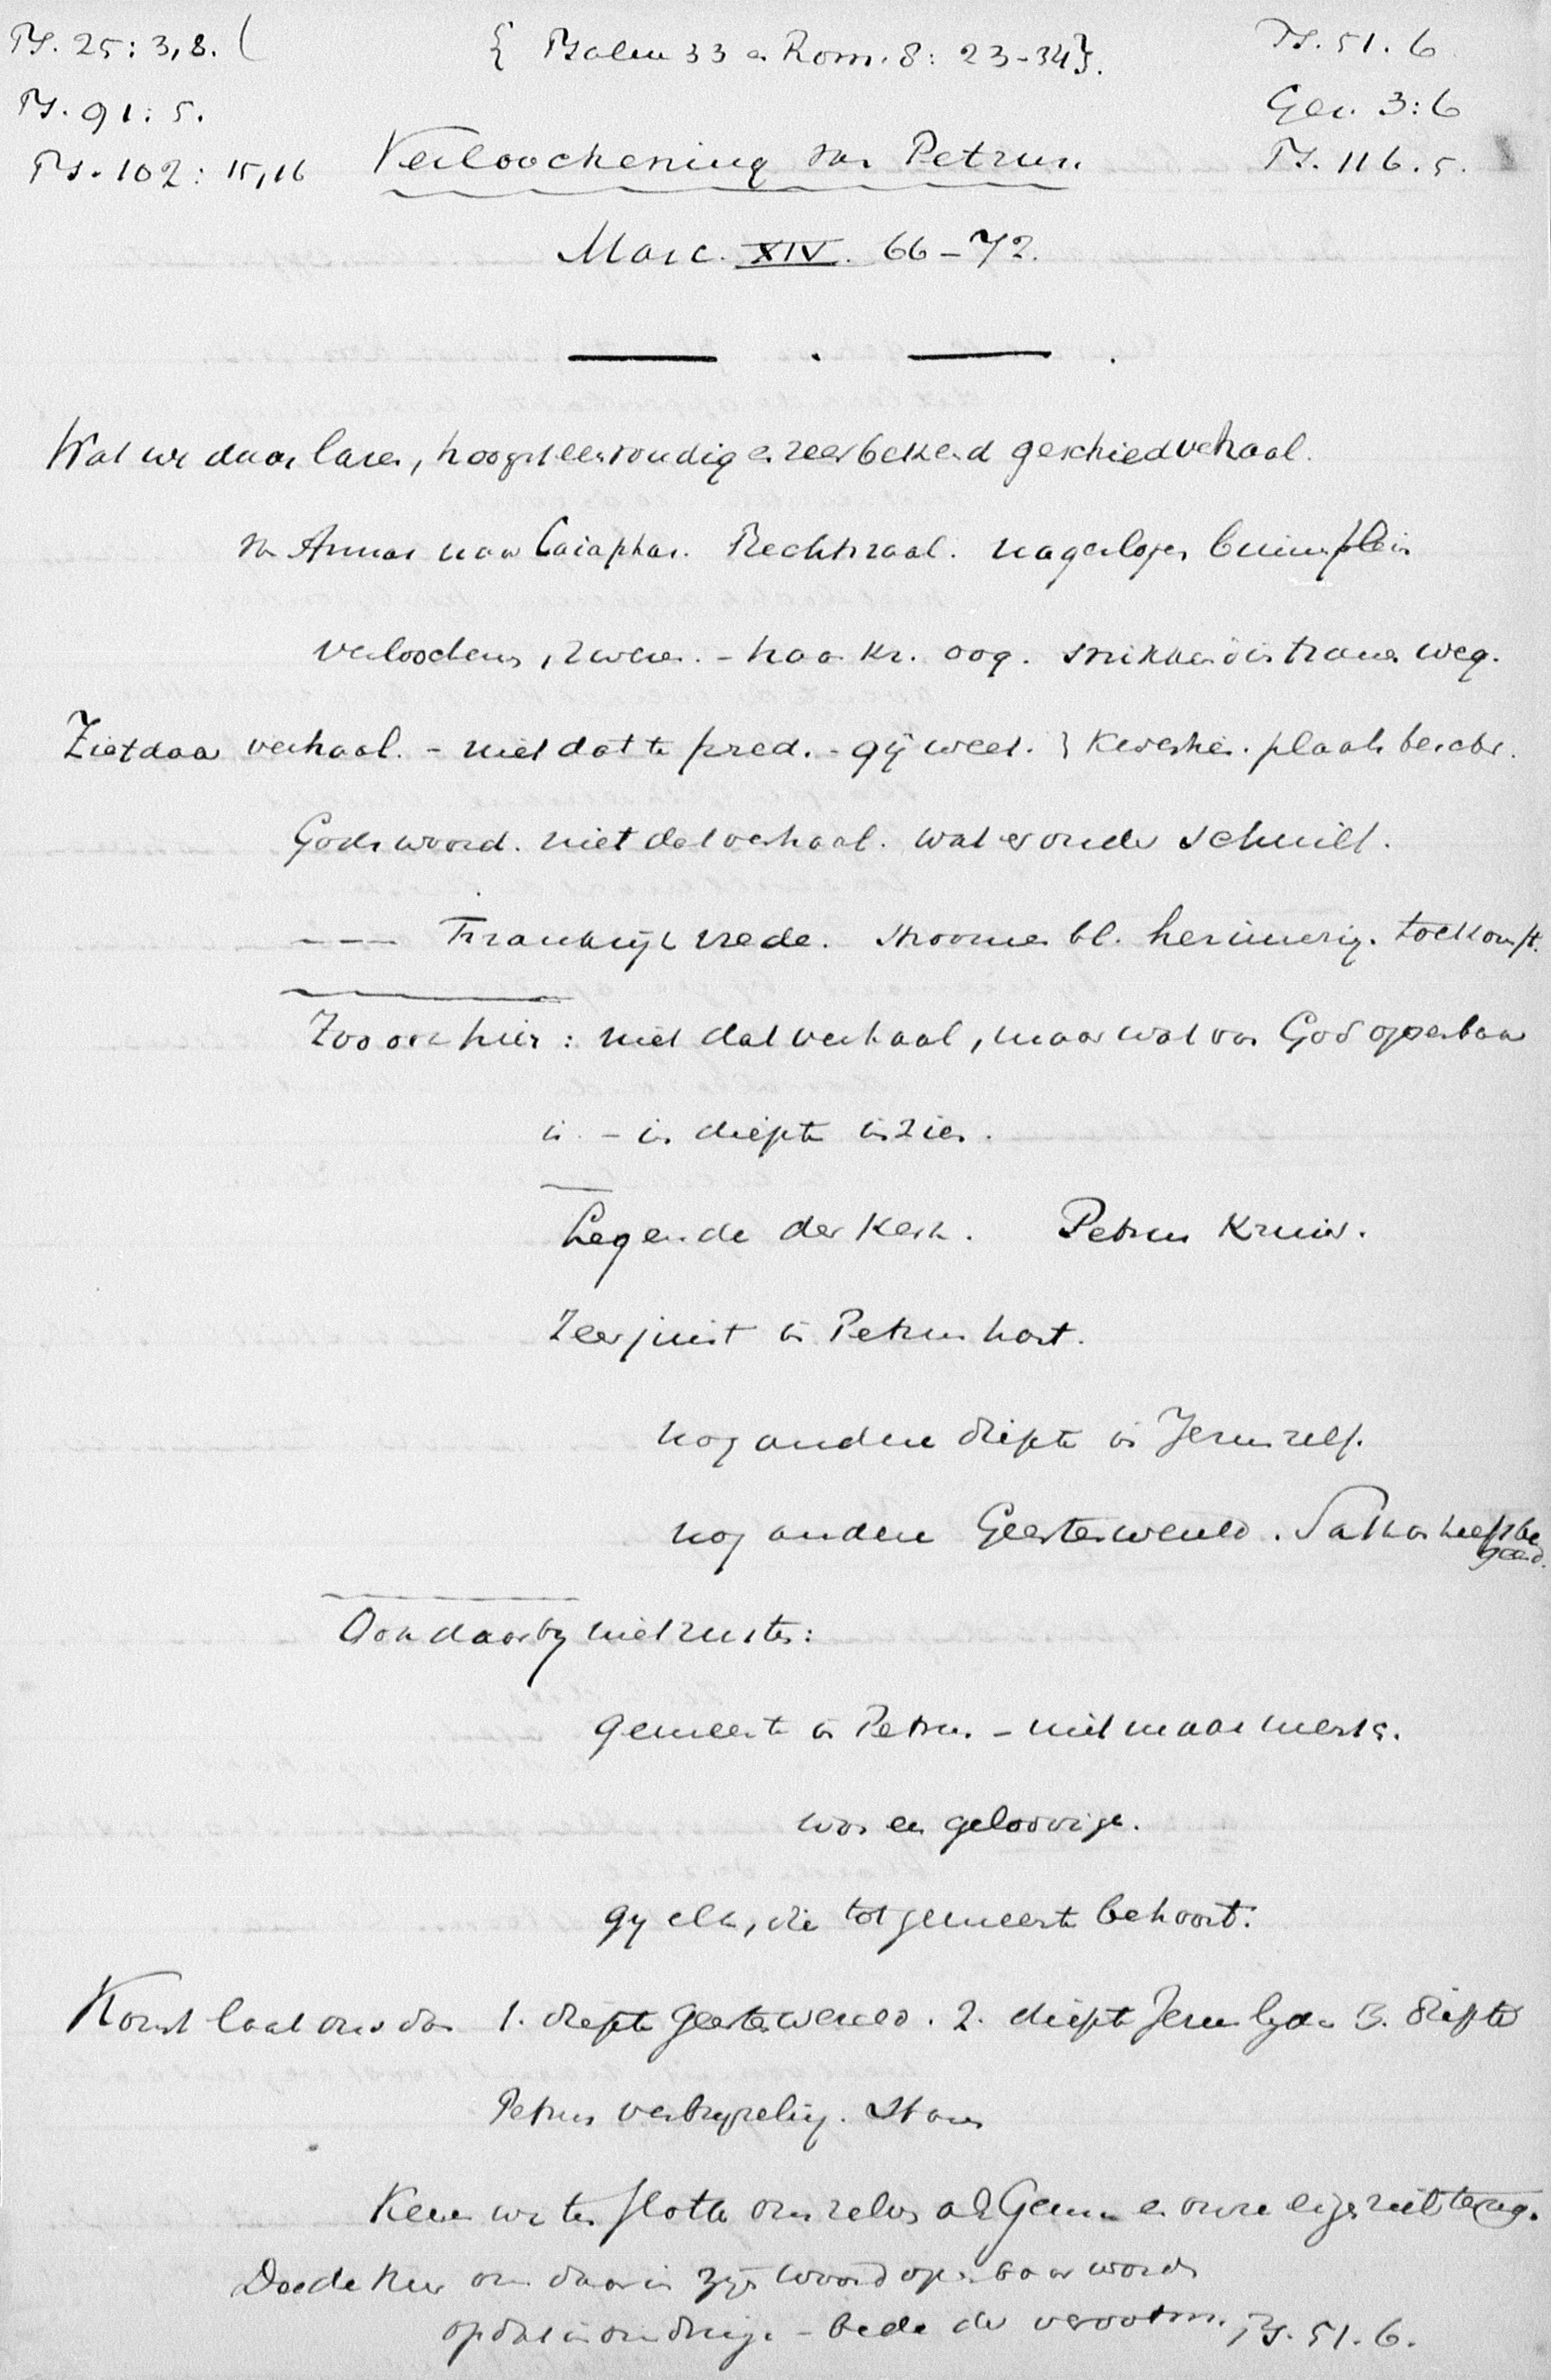 Ps. 25: 3, 8. (
{ Psalm 33 en Rom. 8: 23-34}.
Ps. 51. 6
Ps. 91: 5.
Gen. 3:6
Ps. 102: 15,16
Verloochening van Petrus.
Ps. 116. 5.
Marc. XIV. 66-72.
Wat we daar lazen, hoogst eenvoudig en zeer bekend geschiedverhaal.
van Annas naar Caiaphas. Rechtzaal. binnenplein
verloochenen, zweren. - haan kr. oog. snikkend in tranen weg.
Ziet daar verhaal. - niet dat te pred. - gij weet. } plaats beschr.
Gods woord. niet dat verhaal. wat er onder schuilt.
--- Frankrijk vrede. stroomen bl. herinnering. toekomst.
Zoo ook hier: niet dat verhaal, maar wat van God openbaar
is - in diepte inzien.
Legende der Kerk. Petrus Kruis.
Zeer juist in Petrus hart.
nog andere diepte in Jezus zelf.
nog andere Geestenwereld. Satan heeft be
geerd.
Ook daarbij niet rusten:
gemeente in Petrus. - niet maar mensch.
was een geloovige.
gij elk, die tot gemeente behoort.
Komt laat ons dan 1. diepte Geestenwereld. 2. diepte Jezus lijden 3. diepte
Petrus verbrijzeling. Staan
Keeren we ten slotte ons zelven als Gem. en onze eigen ziel terug.
Doe de Heer ons daarin zijn woord openbaar worden
opdat in ons dringe - bede der verootm. Ps. 51. 6.